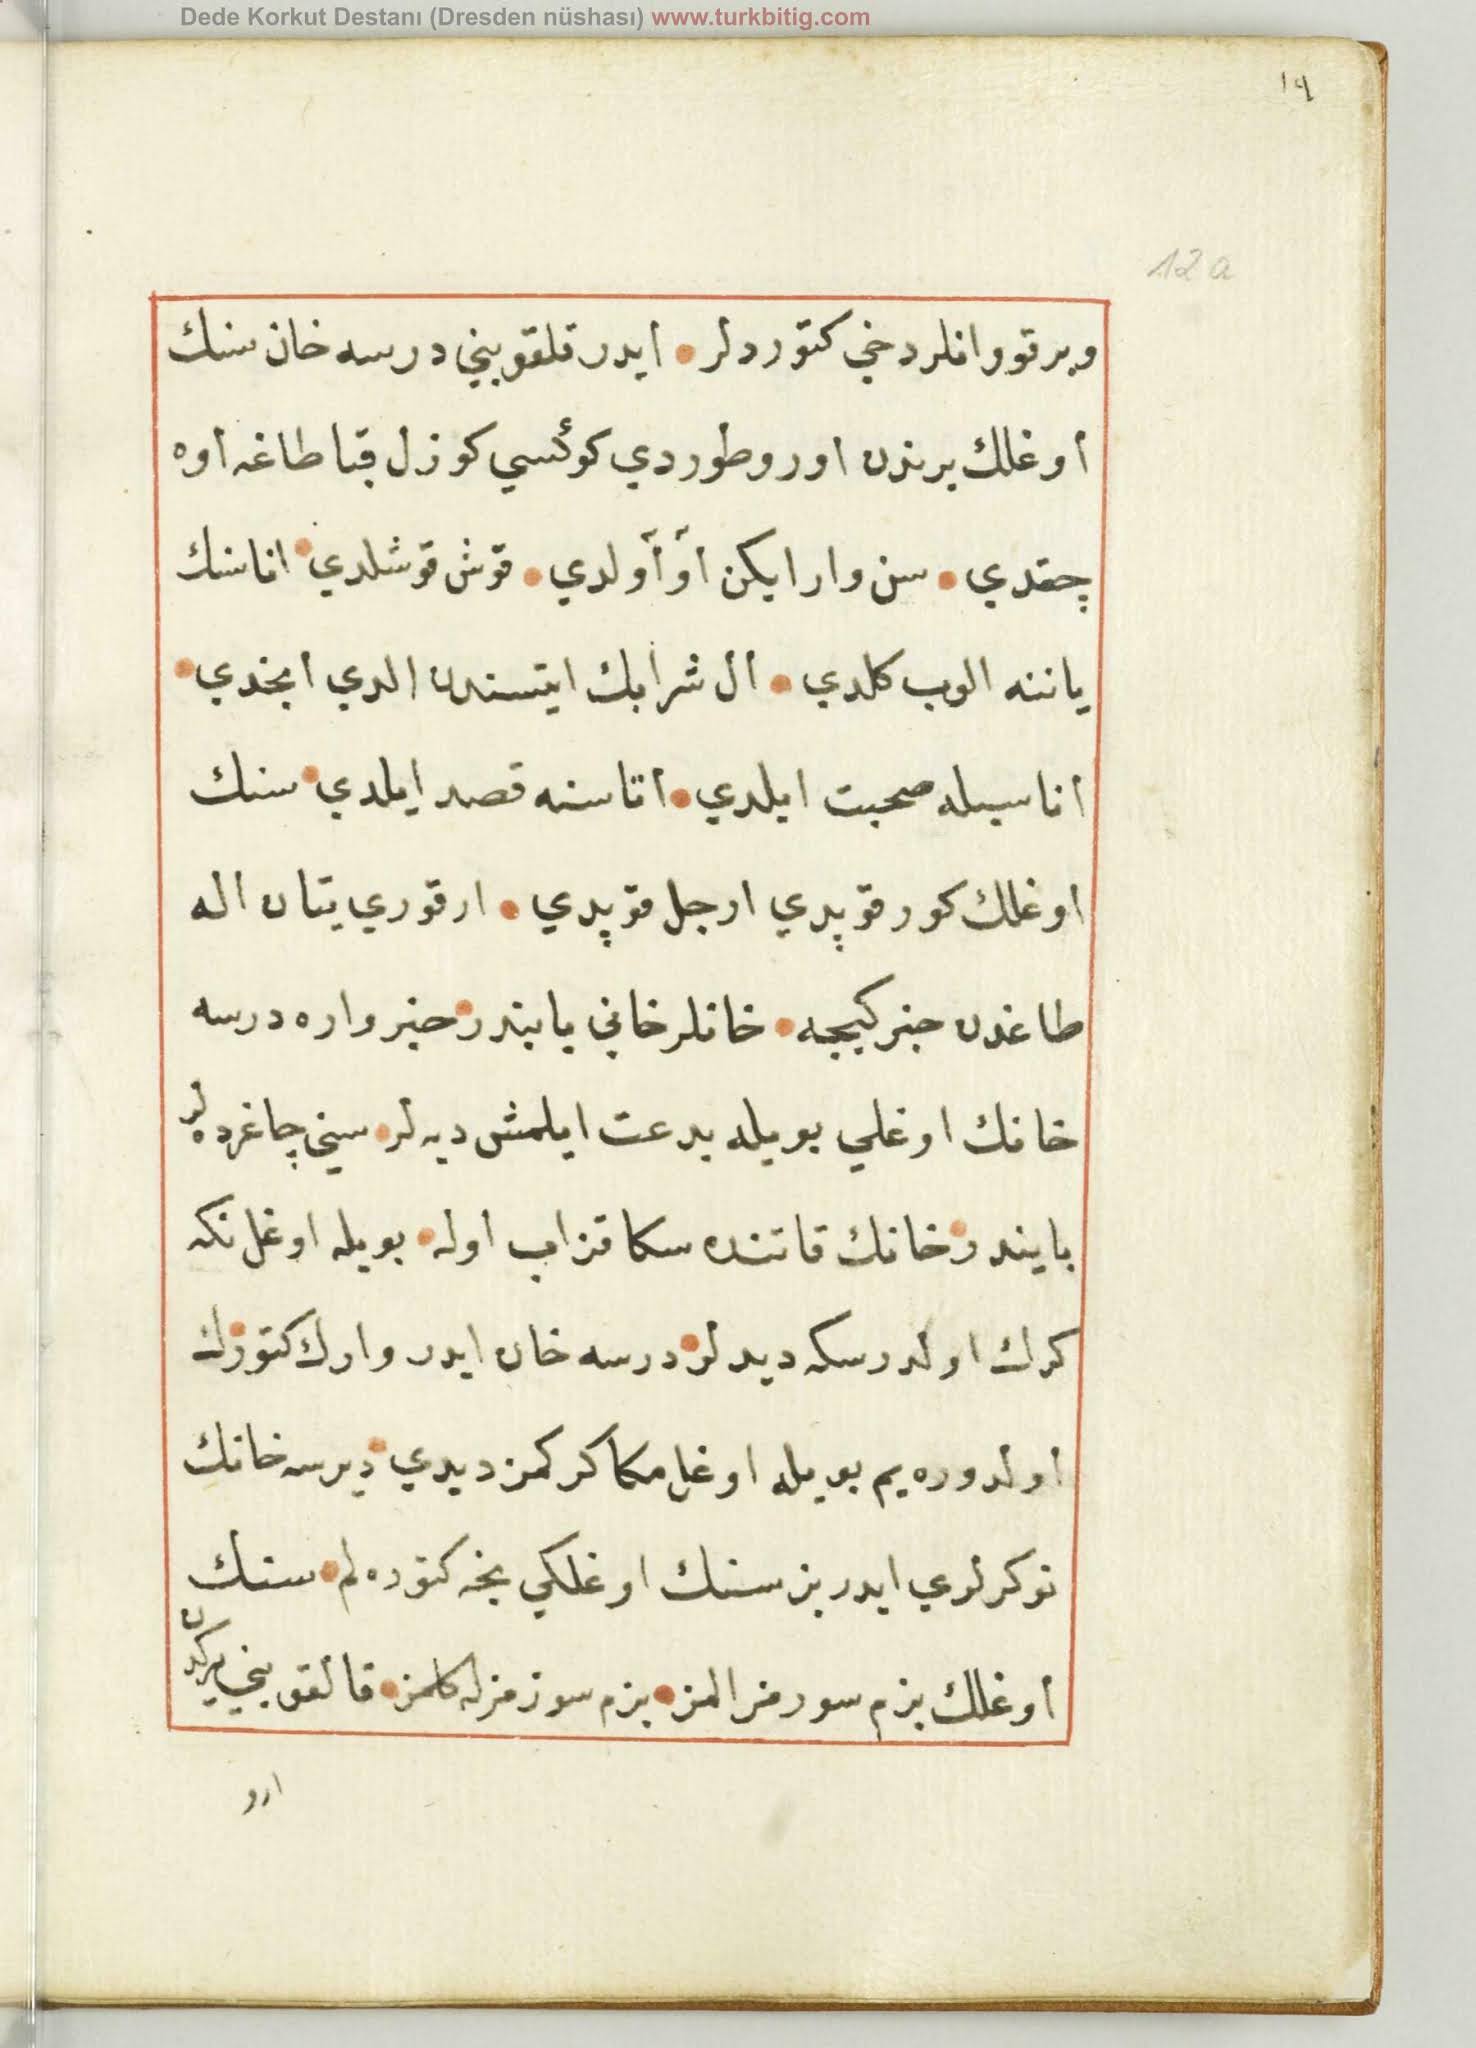 Dede Korkut Destanı (Dresden nüshası) www.turkbitig.com
١٩
12a
ويرقو وانلر دخي كتورد لر • ايدر قلقوبني درسه خان سنك
أوغلك يرندن اورو طوردي كوكسي كوزل قبا طاغه أوه
چقدي • سن وار ايكن أو أولدي • قوش قوشلدي • اناسنك
ياننه الوب كلدي • أل شرابك ايتسندن الدي ايخدي •
اناسيله صحبت ايلدي • أتاسنه قصد ايلدي • سنك
اوغلك كور قوپدي ارجل قوپدي • ارقوري يتان اله
طاغدن خبر كيچه • خانلر خاني بايندر خبر واره درسه
خانك اوغلي بويله بدعت ايلمش ديه لر • سني چاغرده لر
بايندر خانك قاتنده سكا قزاب اوله • بويله اوغل نكه
كرك اولدرسكه ديدلر • درسه خان ايدر وارك كتورك
أولدوره يم بويله اوغل مكا كركمز ديدي • ديرسه خانك
نوكرلري ايدر بز سنك اوغلكي نجه كتوره لم • سنك
أوغلك بزم سوزمز المز • بزم سوزمزله كلمز • قالقوبني يركدن
ارو